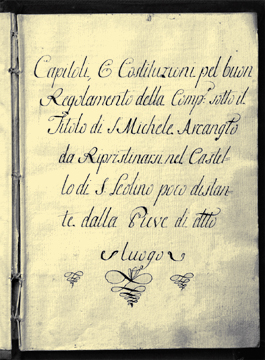 Capitoli, e Costituzioni pel buon
Regolamento della Compa. sotto il
Titolo di S. Michele Arcanglo
da Ripristinarsi nel Castel-
lo di S. Leolino poco distan-
te dalla Pieve di dtto
luogo